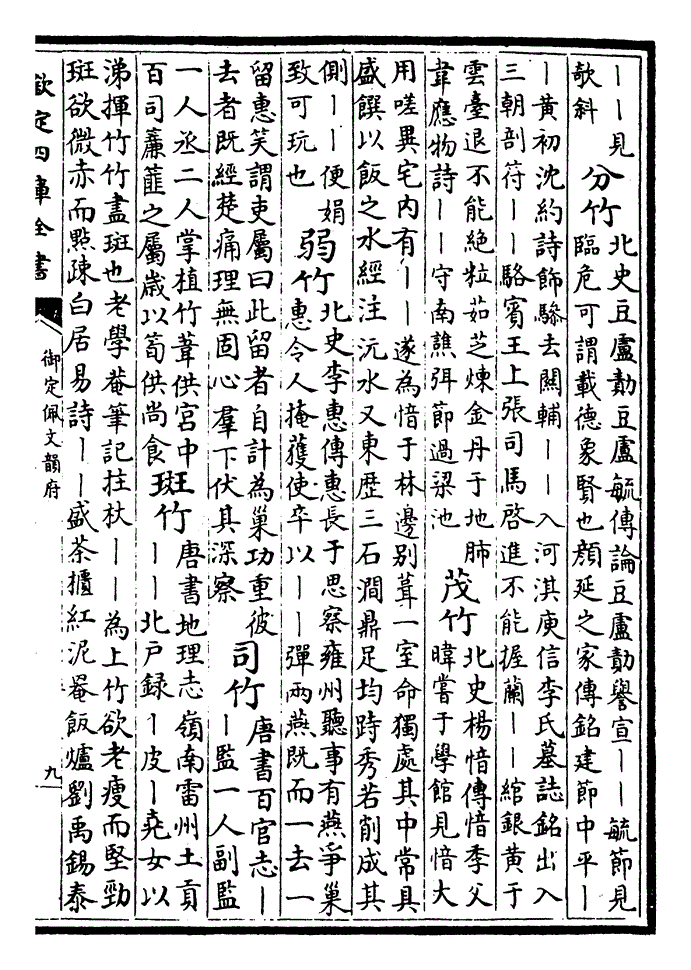 ｜｜見
欹斜
分竹
北史豆盧勣豆盧毓傳論豆盧勣譽宣｜｜毓節見
臨危可謂載德象賢也顔延之家傳銘建節中平｜
｜黃初沈約詩飾驂去關輔｜｜入河淇庾信李氏墓誌銘出入
三朝剖符｜｜駱賓王上張司馬啓進不能握蘭｜｜綰銀黃于
雲臺退不能絶粒茹芝煉金丹于地肺
韋應物詩｜｜守南譙弭節過梁池
茂竹
北史楊愔傳愔季父
暐嘗于學館見愔大
用嗟異宅内有｜｜遂為愔于林邊别葺一室命獨處其中常具
盛饌以飯之水經注沅水又東歴三石澗鼎足均跱秀若削成其
側｜｜便娟
致可玩也
弱竹
北史李惠傳惠長于思察雍州聽事有燕爭巢
惠令人掩獲使卒以｜｜彈兩燕既而一去一
留惠笑謂吏屬曰此留者自計為巢功重彼
去者既經楚痛理無固心羣下伏其深察
司竹
唐書百官志｜
｜監一人副監
一人丞二人掌植竹葦供宫中
百司簾篚之屬歲以筍供尚食
斑竹
唐書地理志嶺南雷州土貢
｜｜北户録｜皮｜堯女以
涕揮竹竹盡斑也老學菴筆記拄杖｜｜為上竹欲老瘦而堅勁
斑欲微赤而㸃疎白居易詩｜｜盛茶櫃紅泥罨飯爐劉禹錫泰
欽定四庫全書
御定佩文韻府
九